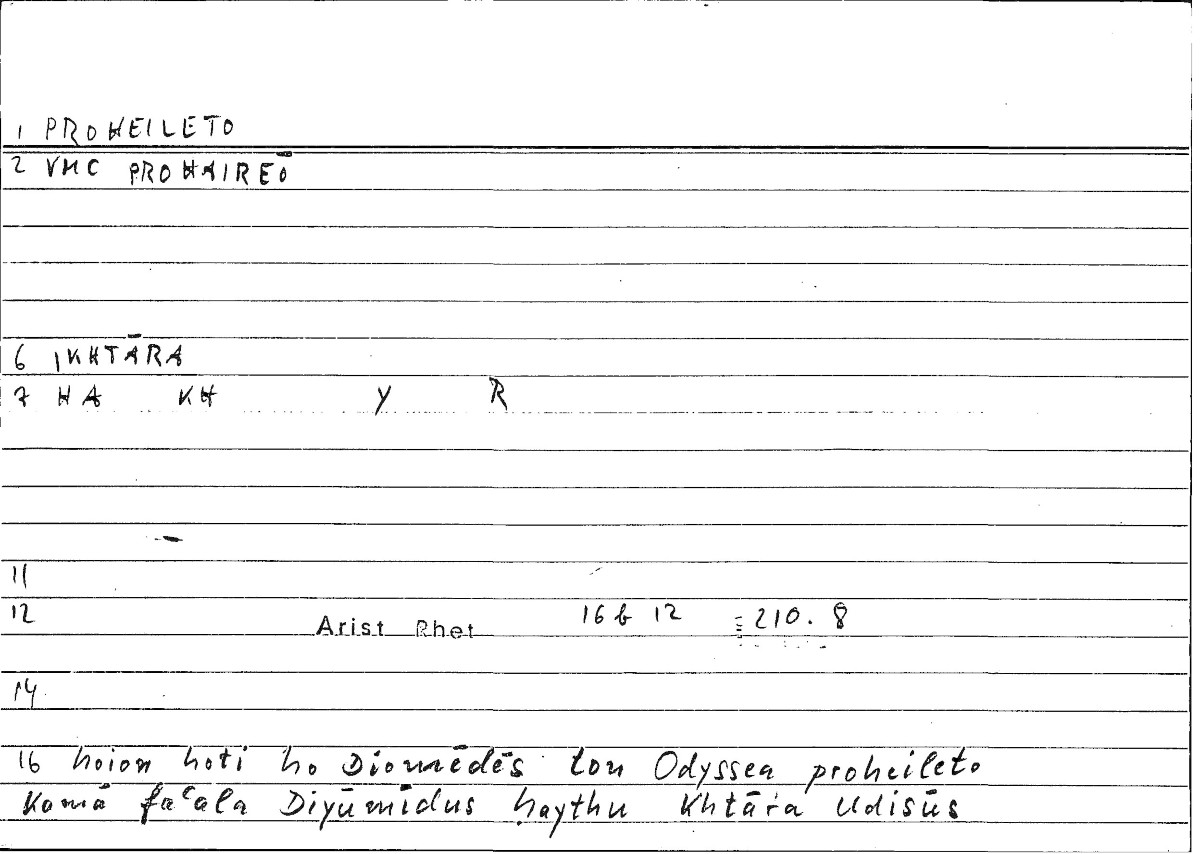 1 PROHEILETO
2 VMC PROHAIREŌ
6 IKHTĀRA
7 HA KH Y R
11
12 Arist Rhet 16b 12 = 210.8
14
16 hoion hoti ho Diomēdēs ton Odyssea proheileto
Kamā faʿala Diyūmīdus ḥaythu Khtāra Udisūs